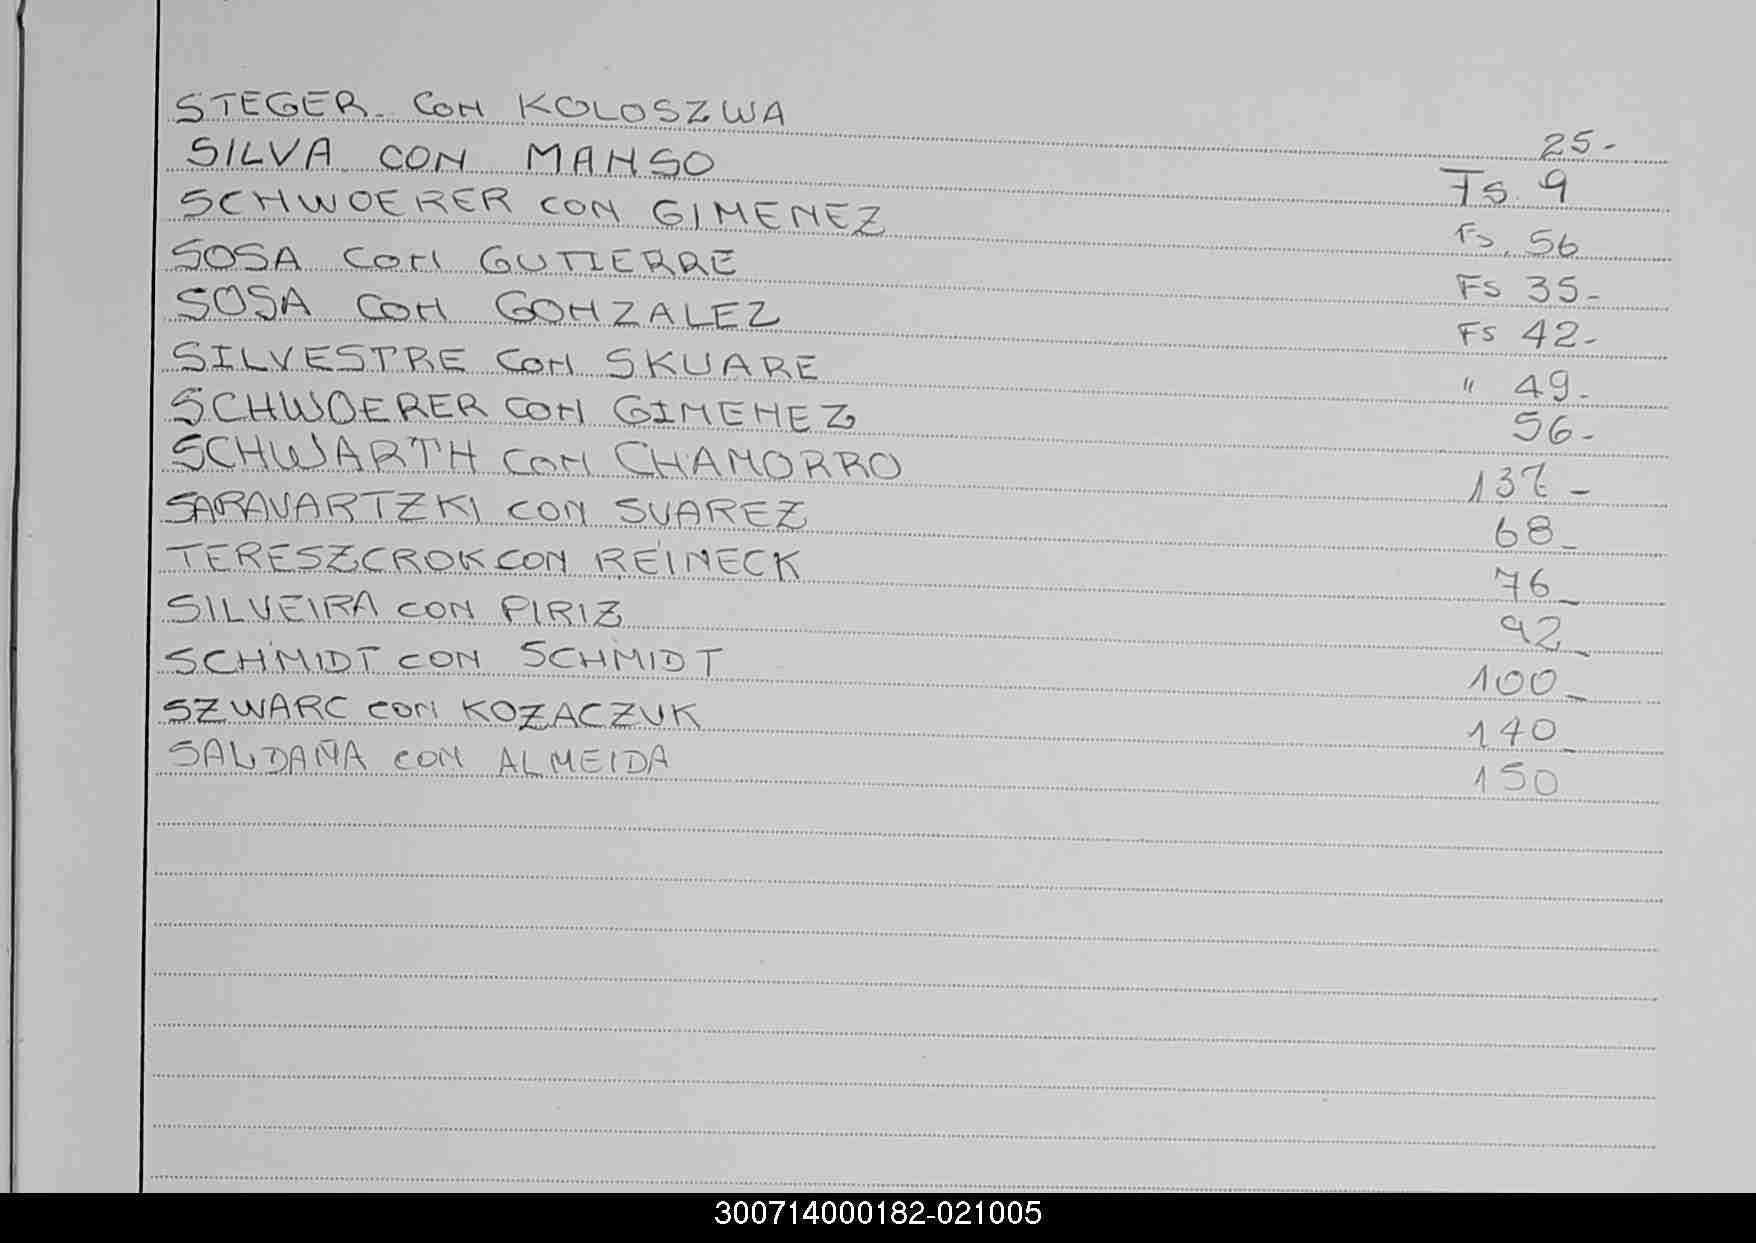 STEGER. CON KOLOSZWA 25-
SILVA CON MANSO Fs. 9
SCHWOERER CON GIMENEZ Fs. 56
SOSA CON GUTIERRE Fs 35-
SOSA CON GONZALEZ Fs 42-
SILVESTRE CON SKUARE " 49-
SCHWOERER CON GIMENEZ 56-
SCHWARTH CON CHAMORRO 137-
SARAVARTZKI CON SUAREZ 68-
TERESZCROK CON REINECK 76-
SILVEIRA CON PIRIZ 92-
SCHMIDT CON SCHMIDT 100-
SZWARC CON KOZACZUK 140-
SALDAÑA CON ALMEIDA 150
300714000182-021005